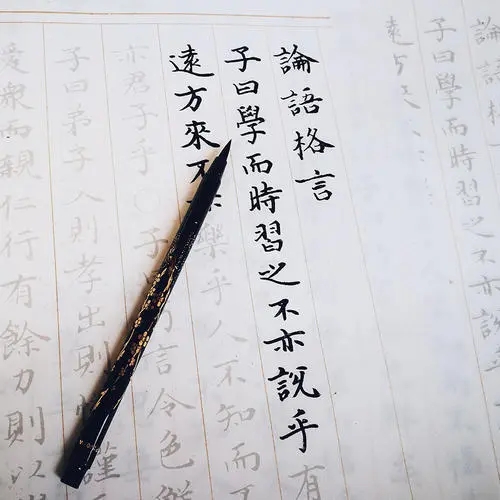 論語
子曰學而時習之不亦
遠方
論語格言
子曰學而時習之不亦說乎有
遠方來不亦樂乎人不知而
亦君子乎子言令色鮮
子曰弟子入則孝出則謹
愛眾而親仁行有餘力則以